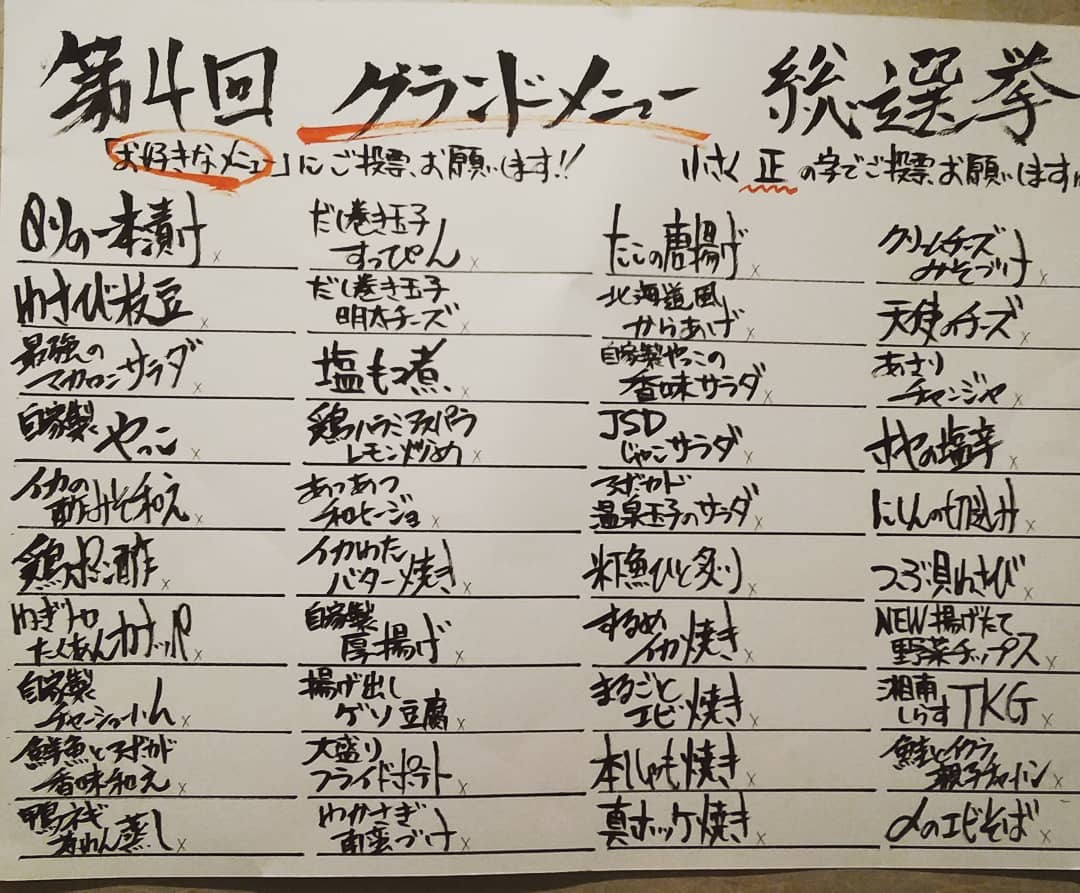 第4回 グランドメニュー 総選挙
「お好きなメニュー」にご投票、お願いします!!
小さく 正 の字でご投票、お願いします
の一本漬け
わさび枝豆
最強の
マカロニサラダ
自家製
やっこ
イカの
酢みそ和え
鶏ポン酢
たくあんカナッパ
自家製
チャーシュー
鮮魚とアボカド
香味和え
鴨ネギ
蒸し
だし巻き玉子
すっぴん
だし巻き玉子
明太チーズ
塩もつ煮
鶏ハラミアスパラ
レモン炒め
あつあつ
和ヒージョ
イカわた
バター焼き
自家製
厚揚げ
揚げ出し
ゲソ豆腐
大盛り
フライドポテト
わかさぎ
南蛮づけ
たこの唐揚げ
北海道風
からあげ
自家製やっこの
香味サラダ
JSD
じゃこサラダ
アボカド
温泉玉子のサラダ
灯魚ひと炙り
するめ
イカ焼き
まるごと
エビ焼き
本ししゃも焼き
真ホッケ焼き
クリームチーズ
みそづけ
天使のチーズ
あさり
チャンジャ
の塩辛
にしんの切込み
つぶ貝わさび
NEW 揚げたて
野菜チップス
湘南
しらす TKG
鮭とイクラ
親子チャーハン
〆のエビそば